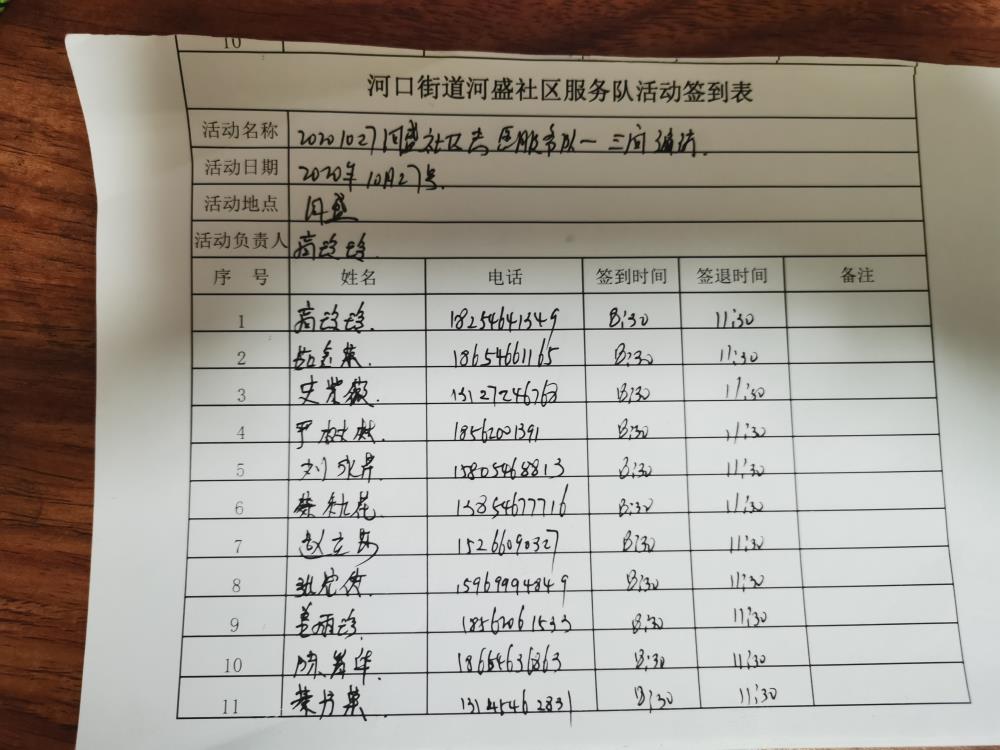 10
河口街道河盛社区服务队活动签到表
活动名称 20201027河盛社区志愿服务队一三问通济.
活动日期 2020年10月27号.
活动地点 河盛
活动负责人 高玲玲.
序 号 姓名 电话 签到时间 签退时间 备注
1 高玲玲. 18254641349 8:30 11:30
2 18654661165 8:30 11:30
3 史紫薇. 13127246768 8:30 11:30
4 严树林. 18562001391 8:30 11:30
5 刘永昇 15805468813 8:30 11:30
6 13854677716 8:30 11:30
7 赵立 15266090327 8:30 11:30
8 15969994849 8:30 11:30
9 姜丽珍. 18562061533 8:30 11:30
10 陈 华. 18654636863 8:30 11:30
11 13145462831 8:30 11:30